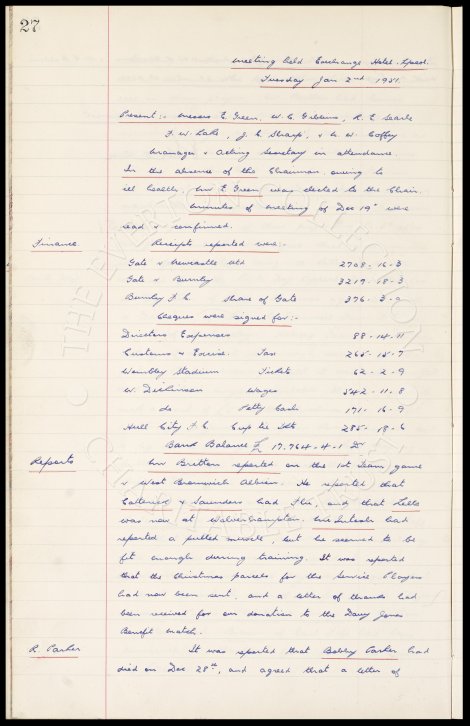 27
Meeting held Exchange Hotel. Lpool.
Tuesday Jan 2nd 1951.
Present:- Messrs E. Green, W. C. Gibbins, R. E. Searle
F. W. Lake, J. C. Sharp, & W. Coffey
Manager & Acting Secretary in attendance.
In the absence of the Chairman, owing to
ill health, Mr E Green was elected to the Chair.
Minutes of meeting of Dec 19th were
read & confirmed.
Finance. Receipts reported were:-
Gate v Newcastle Utd 2708-16-3
Gate v Burnley 3219-18-3
Burnley F.C. Share of Gate 376-3-
Cheques were signed for:-
Directors Expenses 88-14-11
Customs & Excise. Tax 265-15-7
Wembley Stadium Tickets 62-2-9
W. Dickinson Wages 542-11-8
do Petty Cash 171-16-9
Hull City F.C. Cup tie 285-18-6
Bank Balance £ 17.764-4-1 Dr
Reports Mr Britton reported on the 1st Team game
v West Bromwich Albion. He reported that
Catterick & Saunders had Flu, and that
was now at Wolverhampton. McIntosh had
reported a pulled muscle, but he seemed to be
fit enough during training. It was reported
that the Christmas parcels for the Service Players
had now been sent, and a letter of thanks had
been received for our donation to the Davy Jones
Benefit match.
R Parker It was reported that Bobby Parker had
died on Dec 28th, and agreed that a letter of
THE EVERTON COLLECTION